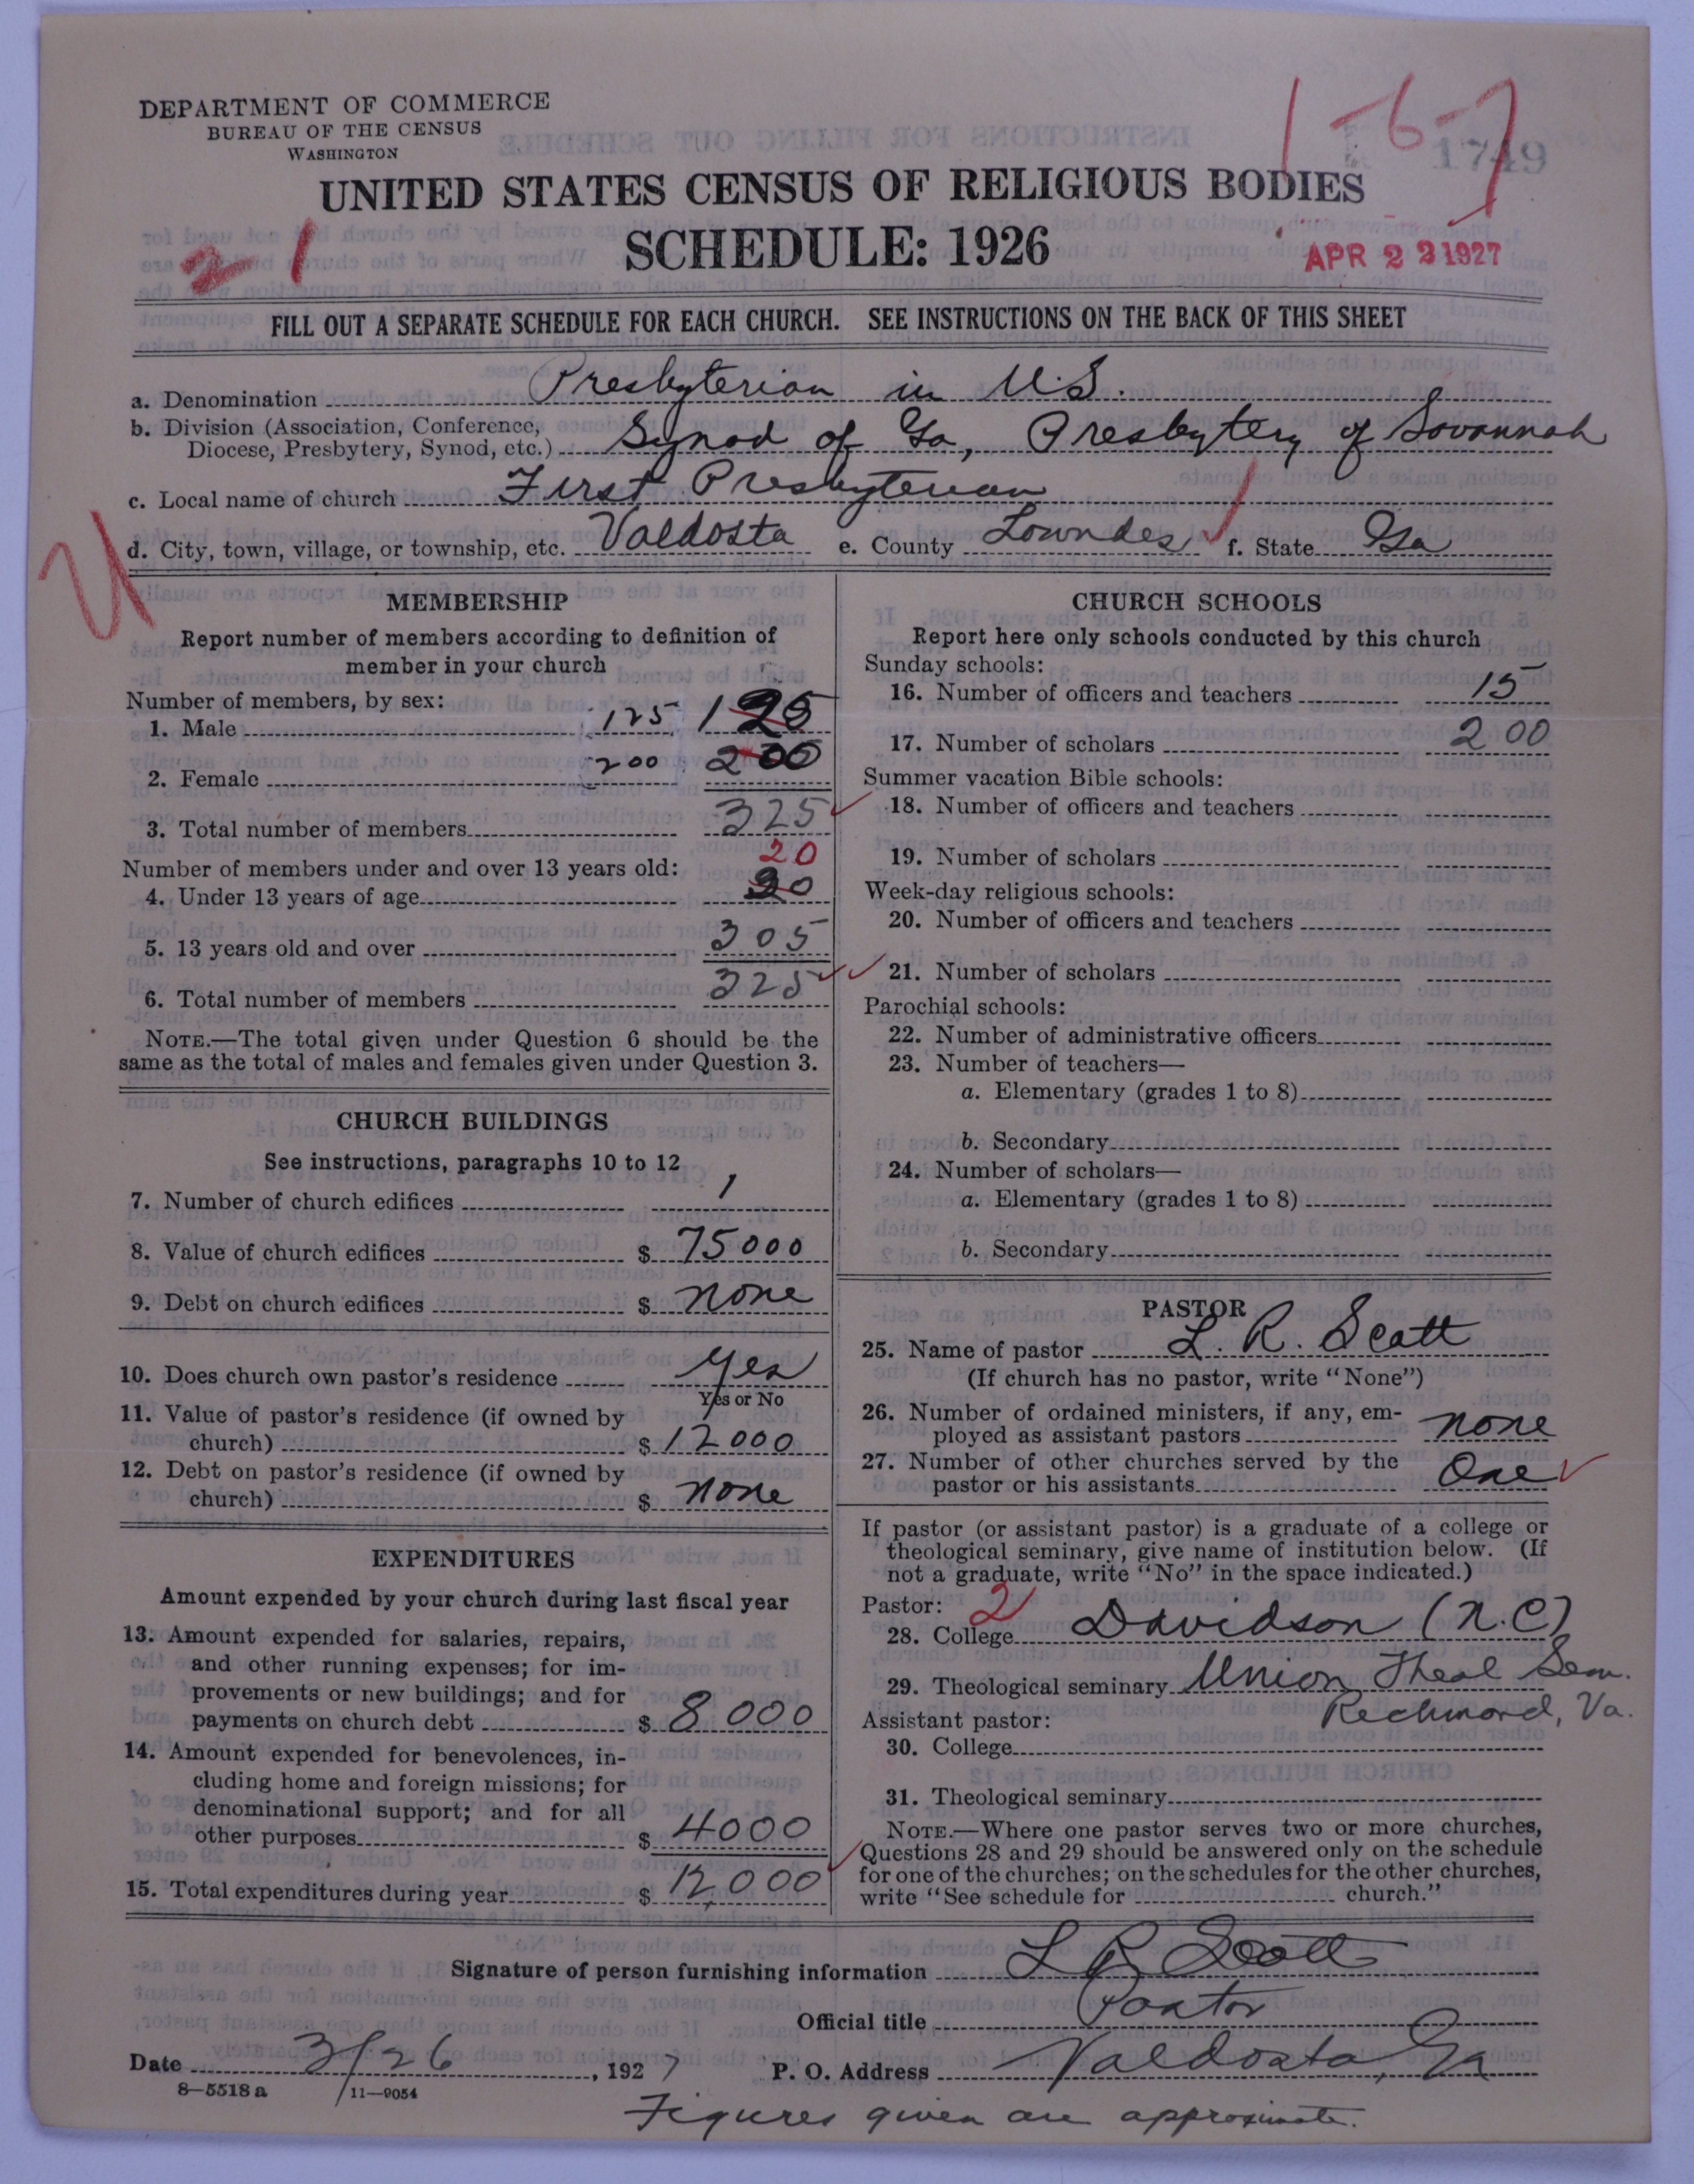 DEPARTMENT OF COMMERCE
BUREAU OF THE CENSUS
WASHINGTON
1-6-7
1749
UNITED STATES CENSUS OF RELIGIOUS BODIES
SCHEDULE: 1926
21
APR 23 1927
FILL OUT A SEPARATE SCHEDULE FOR EACH CHURCH. SEE INSTRUCTIONS ON THE BACK OF THIS SHEET
a. Denomination Presbyterian in U.S.
b. Division (Association, Conference,
Diocese, Presbytery, Synod, etc.) Synod of Ga, Presbytery of Savannah
c. Local name of church First Presbyterian
d. City, town, village, or township, etc. Valdosta e. County Lowndes f. State Ga
MEMBERSHIP
Report number of members according to definition of
member in your church
Number of members, by sex:
1. Male 125 125
2. Female 200 200
3. Total number of members 325
Number of members under and over 13 years old: 20
4. Under 13 years of age 20
5. 13 years old and over 305
6. Total number of members 325
NOTE.—The total given under Question 6 should be the
same as the total of males and females given under Question 3.
CHURCH BUILDINGS
See instructions, paragraphs 10 to 12
7. Number of church edifices 1
8. Value of church edifices $ 75000
9. Debt on church edifices $ none
10. Does church own pastor's residence Yes
Yes or No
11. Value of pastor's residence (if owned by
church) $ 12000
12. Debt on pastor's residence (if owned by
church) $ none
EXPENDITURES
Amount expended by your church during last fiscal year
13. Amount expended for salaries, repairs,
and other running expenses; for im-
provements or new buildings; and for
payments on church debt $ 8000
14. Amount expended for benevolences, in-
cluding home and foreign missions; for
denominational support; and for all
other purposes $ 4000
15. Total expenditures during year $ 12000
CHURCH SCHOOLS
Report here only schools conducted by this church
Sunday schools:
16. Number of officers and teachers 15
17. Number of scholars 200
Summer vacation Bible schools:
18. Number of officers and teachers
19. Number of scholars
Week-day religious schools:
20. Number of officers and teachers
21. Number of scholars
Parochial schools:
22. Number of administrative officers
23. Number of teachers—
a. Elementary (grades 1 to 8)
b. Secondary
24. Number of scholars—
a. Elementary (grades 1 to 8)
b. Secondary
PASTOR
25. Name of pastor L. R. Scott
(If church has no pastor, write "None")
26. Number of ordained ministers, if any, em-
ployed as assistant pastors none
27. Number of other churches served by the
pastor or his assistants One
If pastor (or assistant pastor) is a graduate of a college or
theological seminary, give name of institution below. (If
not a graduate, write "No" in the space indicated.)
Pastor: 2
28. College Davidson (N.C)
29. Theological seminary Union Theol Sem.
Richmond, Va.
Assistant pastor:
30. College
31. Theological seminary
NOTE.—Where one pastor serves two or more churches,
Questions 28 and 29 should be answered only on the schedule
for one of the churches; on the schedules for the other churches,
write "See schedule for church."
Signature of person furnishing information L R Scott
Official title Pastor
Date 3/26, 1927 P. O. Address Valdosta, Ga
8-5518 a 11-9054
Figures given are approximate.